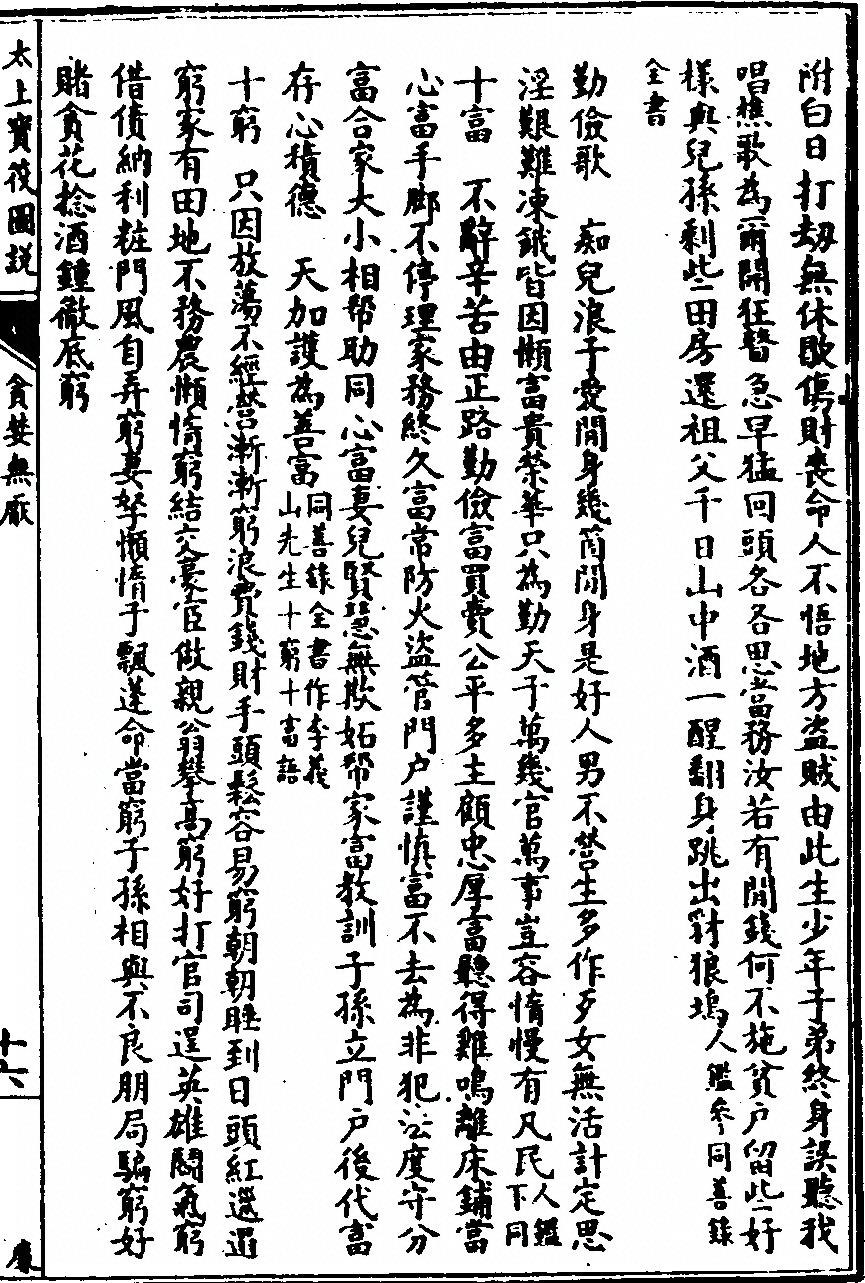 附白日打劫無休歇傷財喪命人不悟地方盗賊由此生少年子弟終身誤聽我
唱樵歌為爾開狂瞽急早猛回頭各各思當務汝若有閒錢何不施貧户留些好
樣與兒孫剩些田房還祖父千日山中酒一醒翻身跳出豺狼塢人鑑參同善錄
全書
勤儉歌 痴兒浪子愛閒身幾箇閒身是好人男不營生多作歹女無活計定思
淫艱難凍餓皆因懶富貴榮華只為勤天子萬幾官萬事豈容惰慢有凡民人鑑下同
十富 不辭辛苦由正路勤儉富買賣公平多主顧忠厚富聽得雞鳴離床鋪當
心富手腳不停理家務終久富常防火盗管門户謹慎富不去為非犯法度守分
富合家大小相幇助同心富妻兒賢慧無欺妬幇家富教訓子孫立門户後代富
存心積德 天加護為善富同善錄全書作李義山先生十窮十富語
十窮 只因放蕩不經營漸漸窮浪費錢財手頭鬆容易窮朝朝睡到日頭紅邋遢
窮家有田地不務農懶惰窮結交豪宦做親翁攀高窮好打官司逞英雄鬬氣窮
借債納利粧門風自弄窮妻孥懶惰子飄蓬命當窮子孫相與不良朋局騙窮好
賭貪花捻酒鍾徹底窮
太上寶筏圖説
貪婪無厭
十六
廉